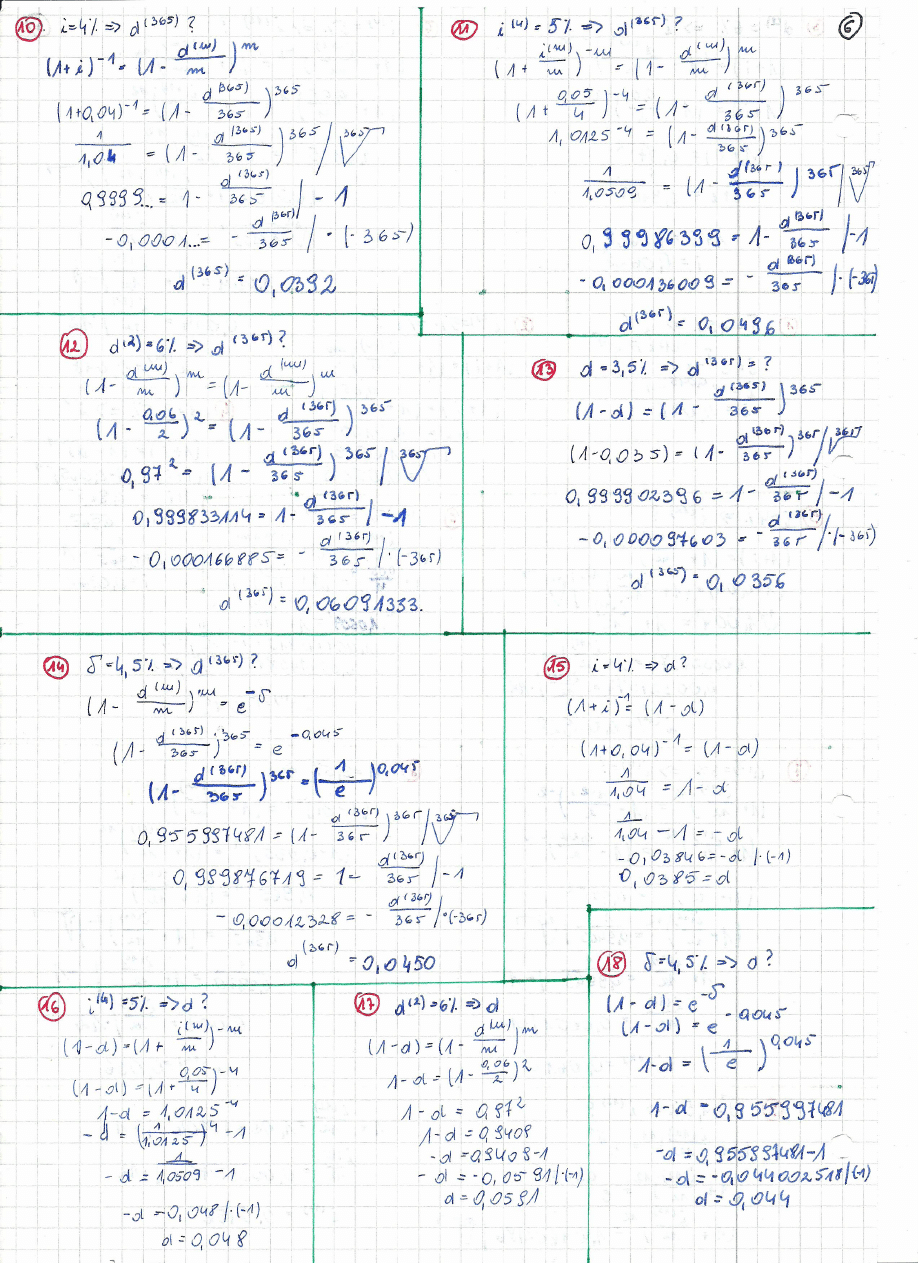 6
10 i=4% => d^(365) ?
(1+i)^-1 = (1 - d^(m)/m)^m
(1+0,04)^-1 = (1 - d^(365)/365)^365
1/1,04 = (1 - d^(365)/365)^365 / 365√
0,9999... = 1 - d^(365)/365 | - 1
-0,0001... = - d^(365)/365 | · (-365)
d^(365) = 0,0392
11 i^(4) = 5% => d^(365) ?
(1 + i^(m)/m)^-m = (1 - d^(m)/m)^m
(1 + 0,05/4)^-4 = (1 - d^(365)/365)^365
1,0125^-4 = (1 - d^(365)/365)^365
1/1,0509 = (1 - d^(365)/365)^365 / 365√
0,99986399 = 1 - d^(365)/365 | -1
-0,000136009 = - d^(365)/365 | ·(-365)
d^(365) = 0,0496
12 d^(2) = 6% => d^(365) ?
(1 - d^(m)/m)^m = (1 - d^(m)/m)^m
(1 - 0,06/2)^2 = (1 - d^(365)/365)^365
0,97^2 = (1 - d^(365)/365)^365 / 365√
0,999833114 = 1 - d^(365)/365 | -1
-0,000166885 = - d^(365)/365 | ·(-365)
d^(365) = 0,06091333.
13 d = 3,5% => d^(365) = ?
(1-d) = (1 - d^(365)/365)^365
(1-0,035) = (1 - d^(365)/365)^365 / 365√
0,999902396 = 1 - d^(365)/365 | -1
-0,000097603 = - d^(365)/365 | ·(-365)
d^(365) = 0,0356
14 δ=4,5% => d^(365) ?
(1 - d^(m)/m)^m = e^-δ
(1 - d^(365)/365)^365 = e^-0,045
(1 - d^(365)/365)^365 = (1/e)^0,045
0,955997481 = (1 - d^(365)/365)^365 / 365√
0,999876719 = 1 - d^(365)/365 | -1
-0,00012328 = - d^(365)/365 | ·(-365)
d^(365) = 0,0450
15 i=4% => d?
(1+i)^-1 = (1-d)
(1+0,04)^-1 = (1-d)
1/1,04 = 1-d
1/1,04 - 1 = -d
-0,03846 = -d |·(-1)
0,0385 = d
16 i^(4) = 5% => d ?
(1-d) = (1 + i^(m)/m)^-m
(1-d) = (1 + 0,05/4)^-4
1-d = 1,0125^-4
-d = (1/1,0125)^4 - 1
-d = 1/1,0509 - 1
-d = -0,048 |·(-1)
d = 0,048
17 d^(2) = 6% => d
(1-d) = (1 - d^(m)/m)^m
1-d = (1 - 0,06/2)^2
1-d = 0,97^2
1-d = 0,9409
-d = 0,9409-1
-d = -0,0591 |·(-1)
d = 0,0591
18 δ=4,5% => d ?
(1-d) = e^-δ
(1-d) = e^-0,045
1-d = (1/e)^0,045
1-d = 0,955997481
-d = 0,955997481-1
-d = -0,044002518 |(-1)
d = 0,044